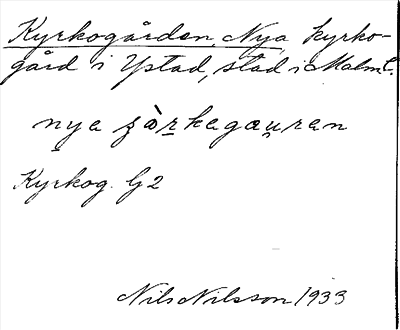 Kyrkogården, Nya, kyrko-
gård i Ystad, stad i Malm l.
nya ʂàrkagauran
Kyrkog. G2
Nils Nilsson 1933